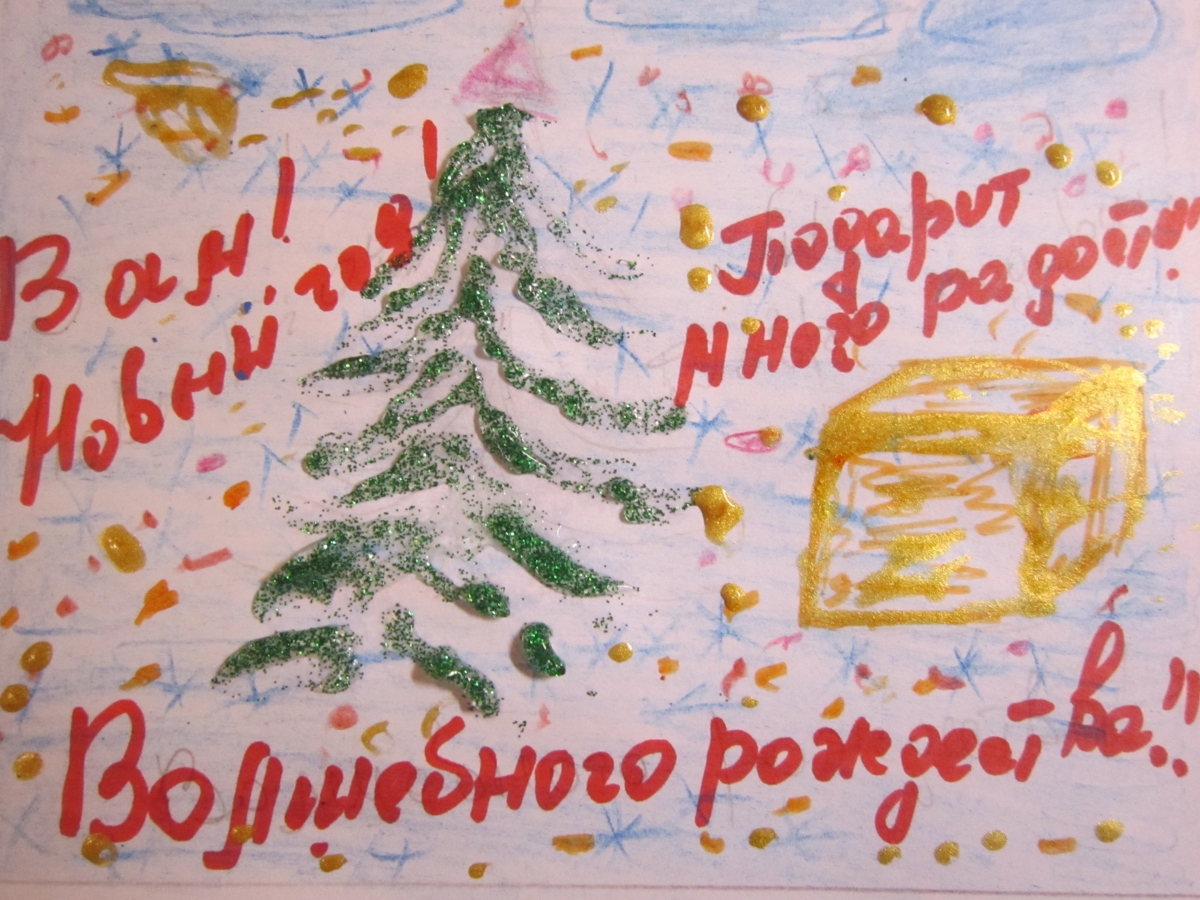 Вам!
Новый год!
Подарит
много радости!!
Волшебного рождества!!